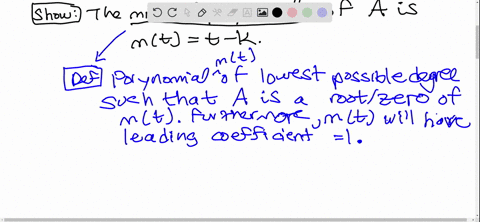 Show: The of A is
m(t) = t - k.
m(t)
Def Polynomial ^ of lowest possible degree
such that A is a root/zero of
m(t). Furthermore, m(t) will have
leading coefficient = 1.